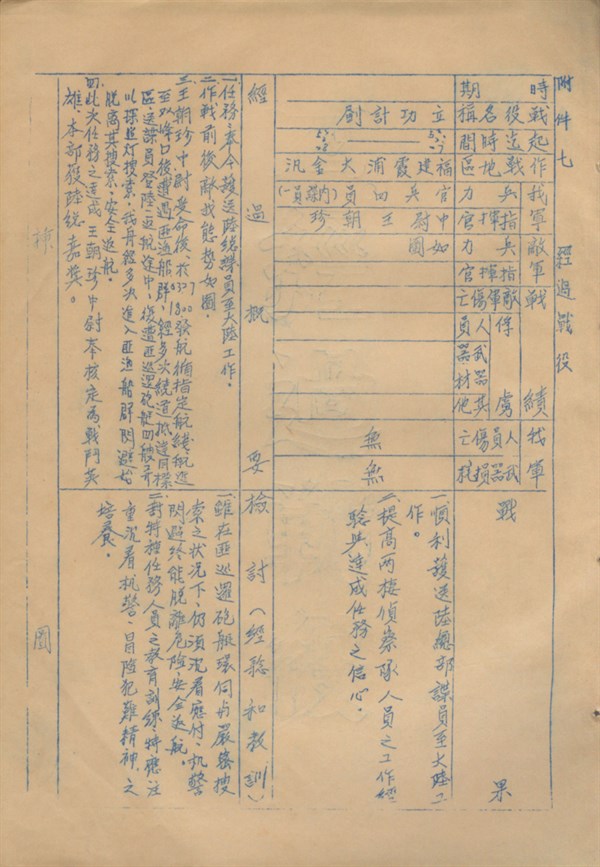 附件七
經過戰役
時期
戰役名稱 立功計劃
起迄時間
作戰地區 福建霞浦大金汎
我軍
兵力 官兵四員
指揮官 中尉王朝珍
敵軍
兵力 如圖
指揮官
戰績
敵軍傷亡
俘虜
人員
武器
器材
其他
我軍
人員傷亡 無
武器損耗 無
戰果
一、順利護送陸總部諜員至大陸工作。
二、提高兩棲偵察隊人員之工作經驗與達成任務之信心。
經過概要
一、任務:奉令護送陸總諜員至大陸工作。
二、作戰前後敵我態勢如圖。
三、王朝珍中尉受命後、於
1800發航循指定航綫航進
至
峰口後遭遇匪漁船群、經多次繞道抵達目標
區、送諜員登陸、返航途中、復遭匪巡邏砲艇四艘并
以探照灯搜索、我舟經多次進入匪漁船群閃避始
脫離其搜索、安全返航。
四、此次任務之達成王朝珍中尉奉核定為戰鬥英
雄、本部獲陸總嘉獎。
檢討(經驗和教訓)
一、雖在匪巡邏砲艇環伺与嚴密搜
索之狀況下、仍須沉着應付、机警
閃避終能脫離危險安全返航。
二、對特種任務人員之教育訓練、特應注
重沉着机警、冒險犯難精神、之
培養。
圖